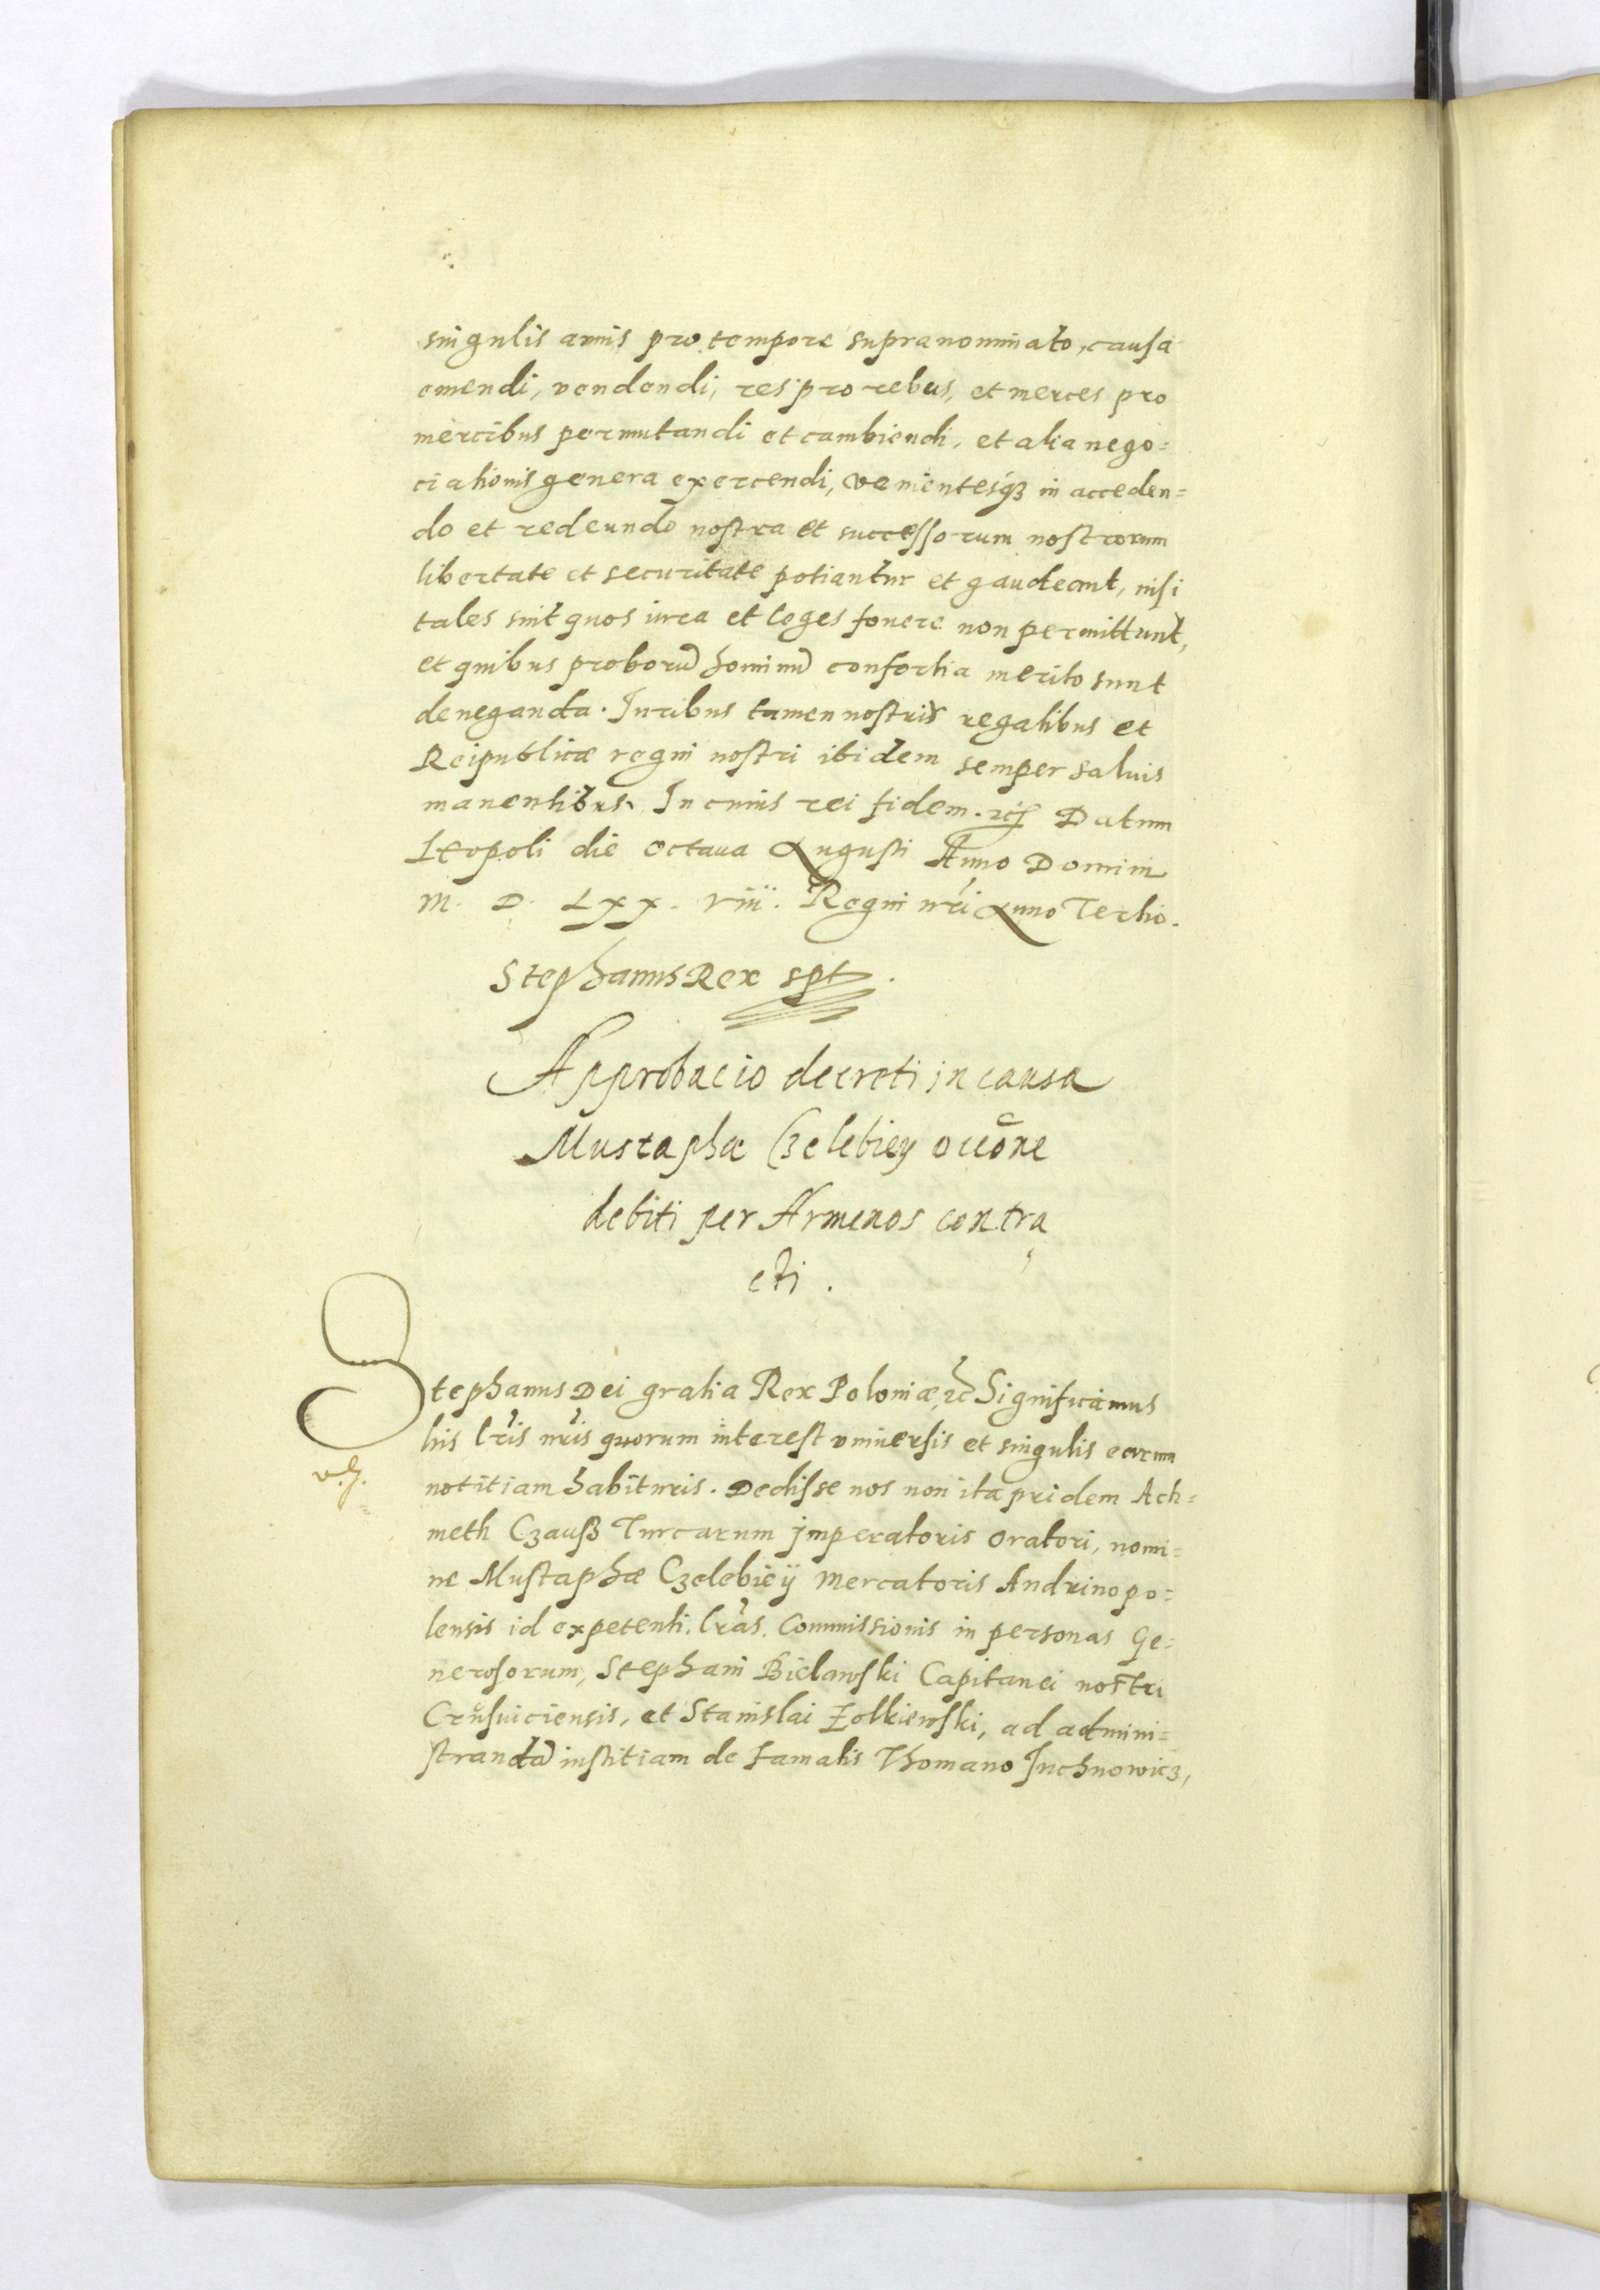 singulis annis pro tempore supranominato, causa
emendi, vendendi, res pro rebus, et merces pro
mercibus permutandi et cambiendi, et alia nego=
ciationis genera exercendi, venientesq3 in acceden=
do et redeundo nostra et successorum nostrorum
libertate et securitate potiantur et gaudeant, nisi
tales sint quos iura et leges fouere non permittunt,
et quibus proborũ hominũ consortia merito sunt
deneganda. Iuribus tamen nostris regalibus et
Reipublicæ regni nostri ibidem semper saluis
manentibus. In cuius rei fidem. Datum
Leopoli die octaua Augusti Anno Domini
M. D. LXX. viii. Regni nr̃i Anno Tertio.
Stephanus Rex spt.
Approbacio decreti in causa
Mustaphæ Czelebiey occõne
debiti per Armenos contra
cti.
Stephanus Dei gratia Rex Poloniæ, ꝛc Significamus
his lr̃is nr̃is quorum interest vniuersis et singulis earum
notitiam habituris. Dedisse nos non ita pridem Ach=
meth Czauß Turcarum imperatoris oratori, nomi=
ne Mustaphæ Czelebieÿ mercatoris Andrinopo=
lensis id expetenti. lr̃as. Commissionis in personas Ge=
nerosorum, Stephani Bielawski Capitanei nostri
Crusuiciensis, et Stanislai Żolkiewski, ad admini=
strandã iustitiam de famatis Thomano Juchnowicz,